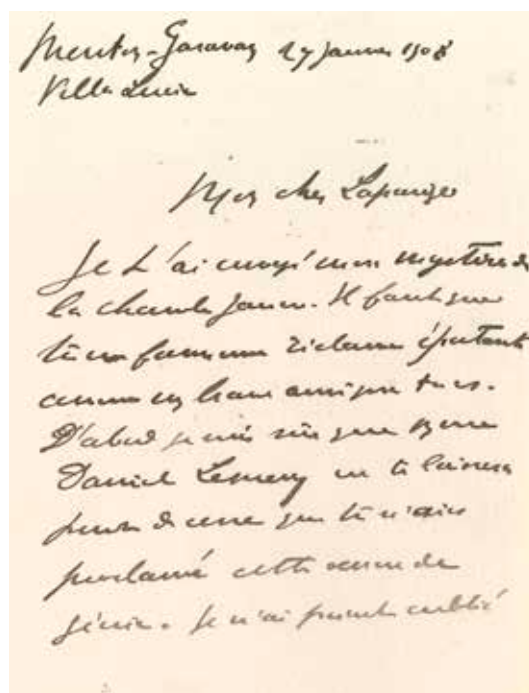 Menton-Garavan 27 janvier 1908
Villa Lucie
Mon cher Lapauze
Je t'ai envoyé mon mystère de
la chambre jaune. Il faut que
tu me fasses une réclame épatante
comme un brave ami que tu es.
D'abord je suis sûr que Mme
Daniel Lesueur ne te laissera
de cesse que tu n'aies
proclamé cette œuvre de
génie. Je n'ai point oublié